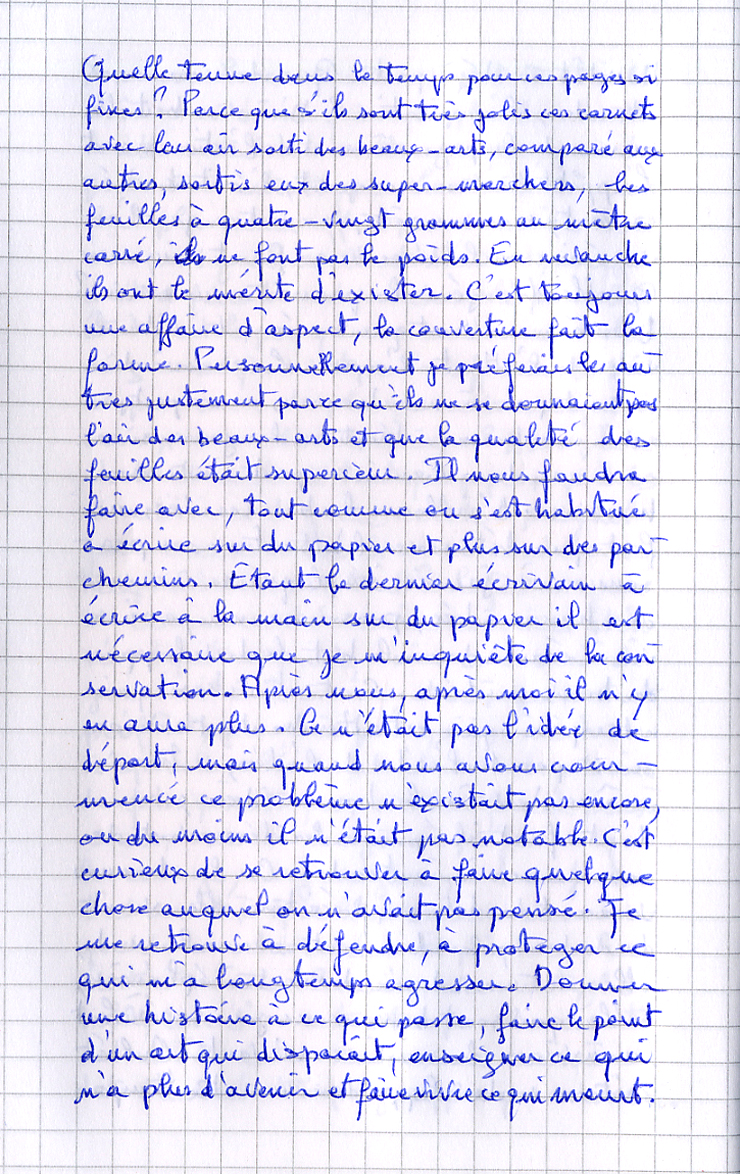 Quelle tenue dans le temps pour ces pages si
fines ? Parce que s'ils sont très jolis ces carnets
avec leur air sorti des beaux-arts, comparé aux
autres, sortis eux des super-marchers, les
feuilles à quatre-vingt grammes au mètre
carré, ils ne font pas le poids. En revanche
ils ont le mérite d'exister. C'est toujours
une affaire d'aspect, la couverture fait la
forme. Personnellement je préférais les au
tres justement parce qu'ils ne se donnaient pas
l'air des beaux-arts et que la qualité des
feuilles était supérieur. Il nous faudra
faire avec, tout comme on s'est habitué
à écrire sur du papier et plus sur des par
chemins. Etant le dernier écrivain à
écrire à la main sur du papier il est
nécessaire que je m'inquiète de la con
servation. Après nous, après moi il n'y
en aura plus. Ce n'était pas l'idée de
départ, mais quand nous avons com-
mencé ce problème n'existait pas encore,
ou du moins il n'était pas notable. C'est
curieux de se retrouver à faire quelque
chose auquel on n'avait pas pensé. Je
me retrouve à défendre, à protéger ce
qui m'a longtemps agresser. Donner
une histoire à ce qui passe, faire le point
d'un art qui disparaît, enseigner ce qui
n'a plus d'avenir et faire vivre ce qui meurt.